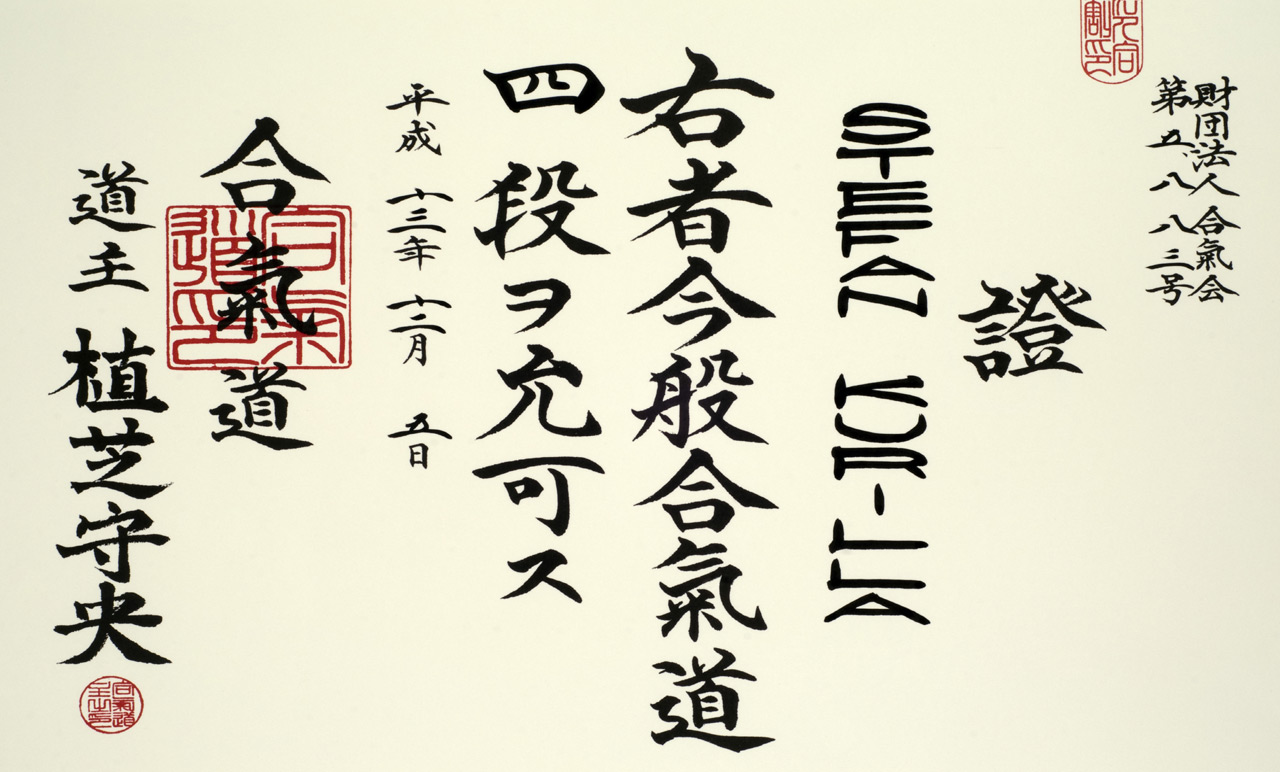 財団法人 合氣会
第五八八三号
證
STEFAN KURILLA
右者今般合氣道
四段ヲ允可ス
平成十三年十二月五日
合氣道
合氣道印
道主 植芝守央